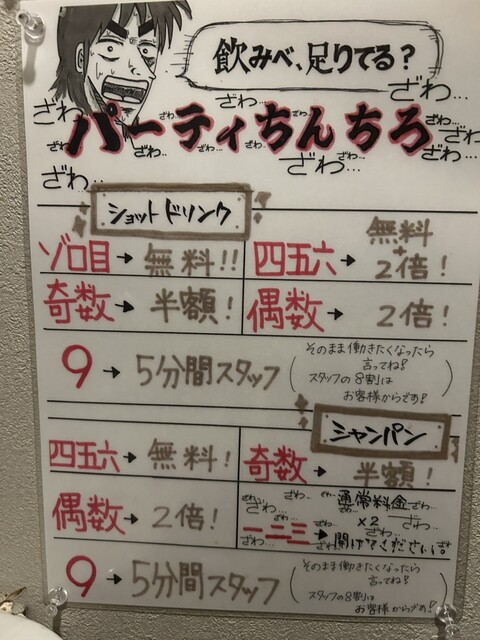 飲みべ、足りてる？
ざわ… ざわ…
パーティちんちろ
ざわ… ざわ… ざわ… ざわ… ざわ…
ざわ… ざわ…
ショットドリンク
ゾロ目→無料!! 四五六→無料+2倍!
奇数→半額! 偶数→2倍!
9→5分間スタッフ
(そのまま働きたくなったら
言ってね!
スタッフの8割は
お客様からです!)
シャンパン
四五六→無料! 奇数→半額!
偶数→2倍! 一二三→通常料金
×2
開けてください。
ざわ… ざわ… ざわ… ざわ…
9→5分間スタッフ
(そのまま働きたくなったら
言ってね!
スタッフの8割は
お客様からです!)